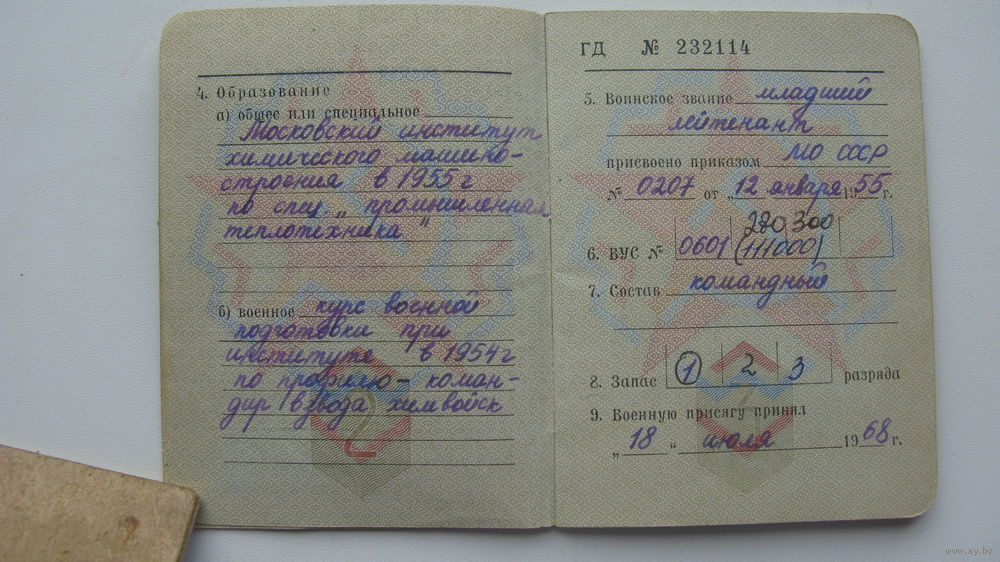 4. Образование
а) общее или специальное
Московский институт
химического машино-
строения в 1955 г
по спец. „ промышленная
теплотехника "
б) военное курс военной
подготовки при
институте в 1954 г
по профилю – коман-
дир взвода химвойск
2
ГД № 232114
5. Воинское звание младший
лейтенант
присвоено приказом МО СССР
№ 0207 от „12 января 1955 г.
280300
6. ВУС № 0601 (111000)
7. Состав командный
8. Запас 1 2 3 разряда
9. Военную присягу принял
„ 18 " июля 1968 г.
www.ay.by